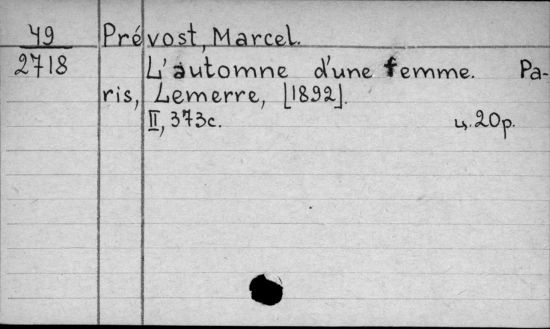 49 Prévost, Marcel.
2718 L'automne d'une femme. Pa-
ris, Lemerre, [1892].
II, 373с. ц. 20р.